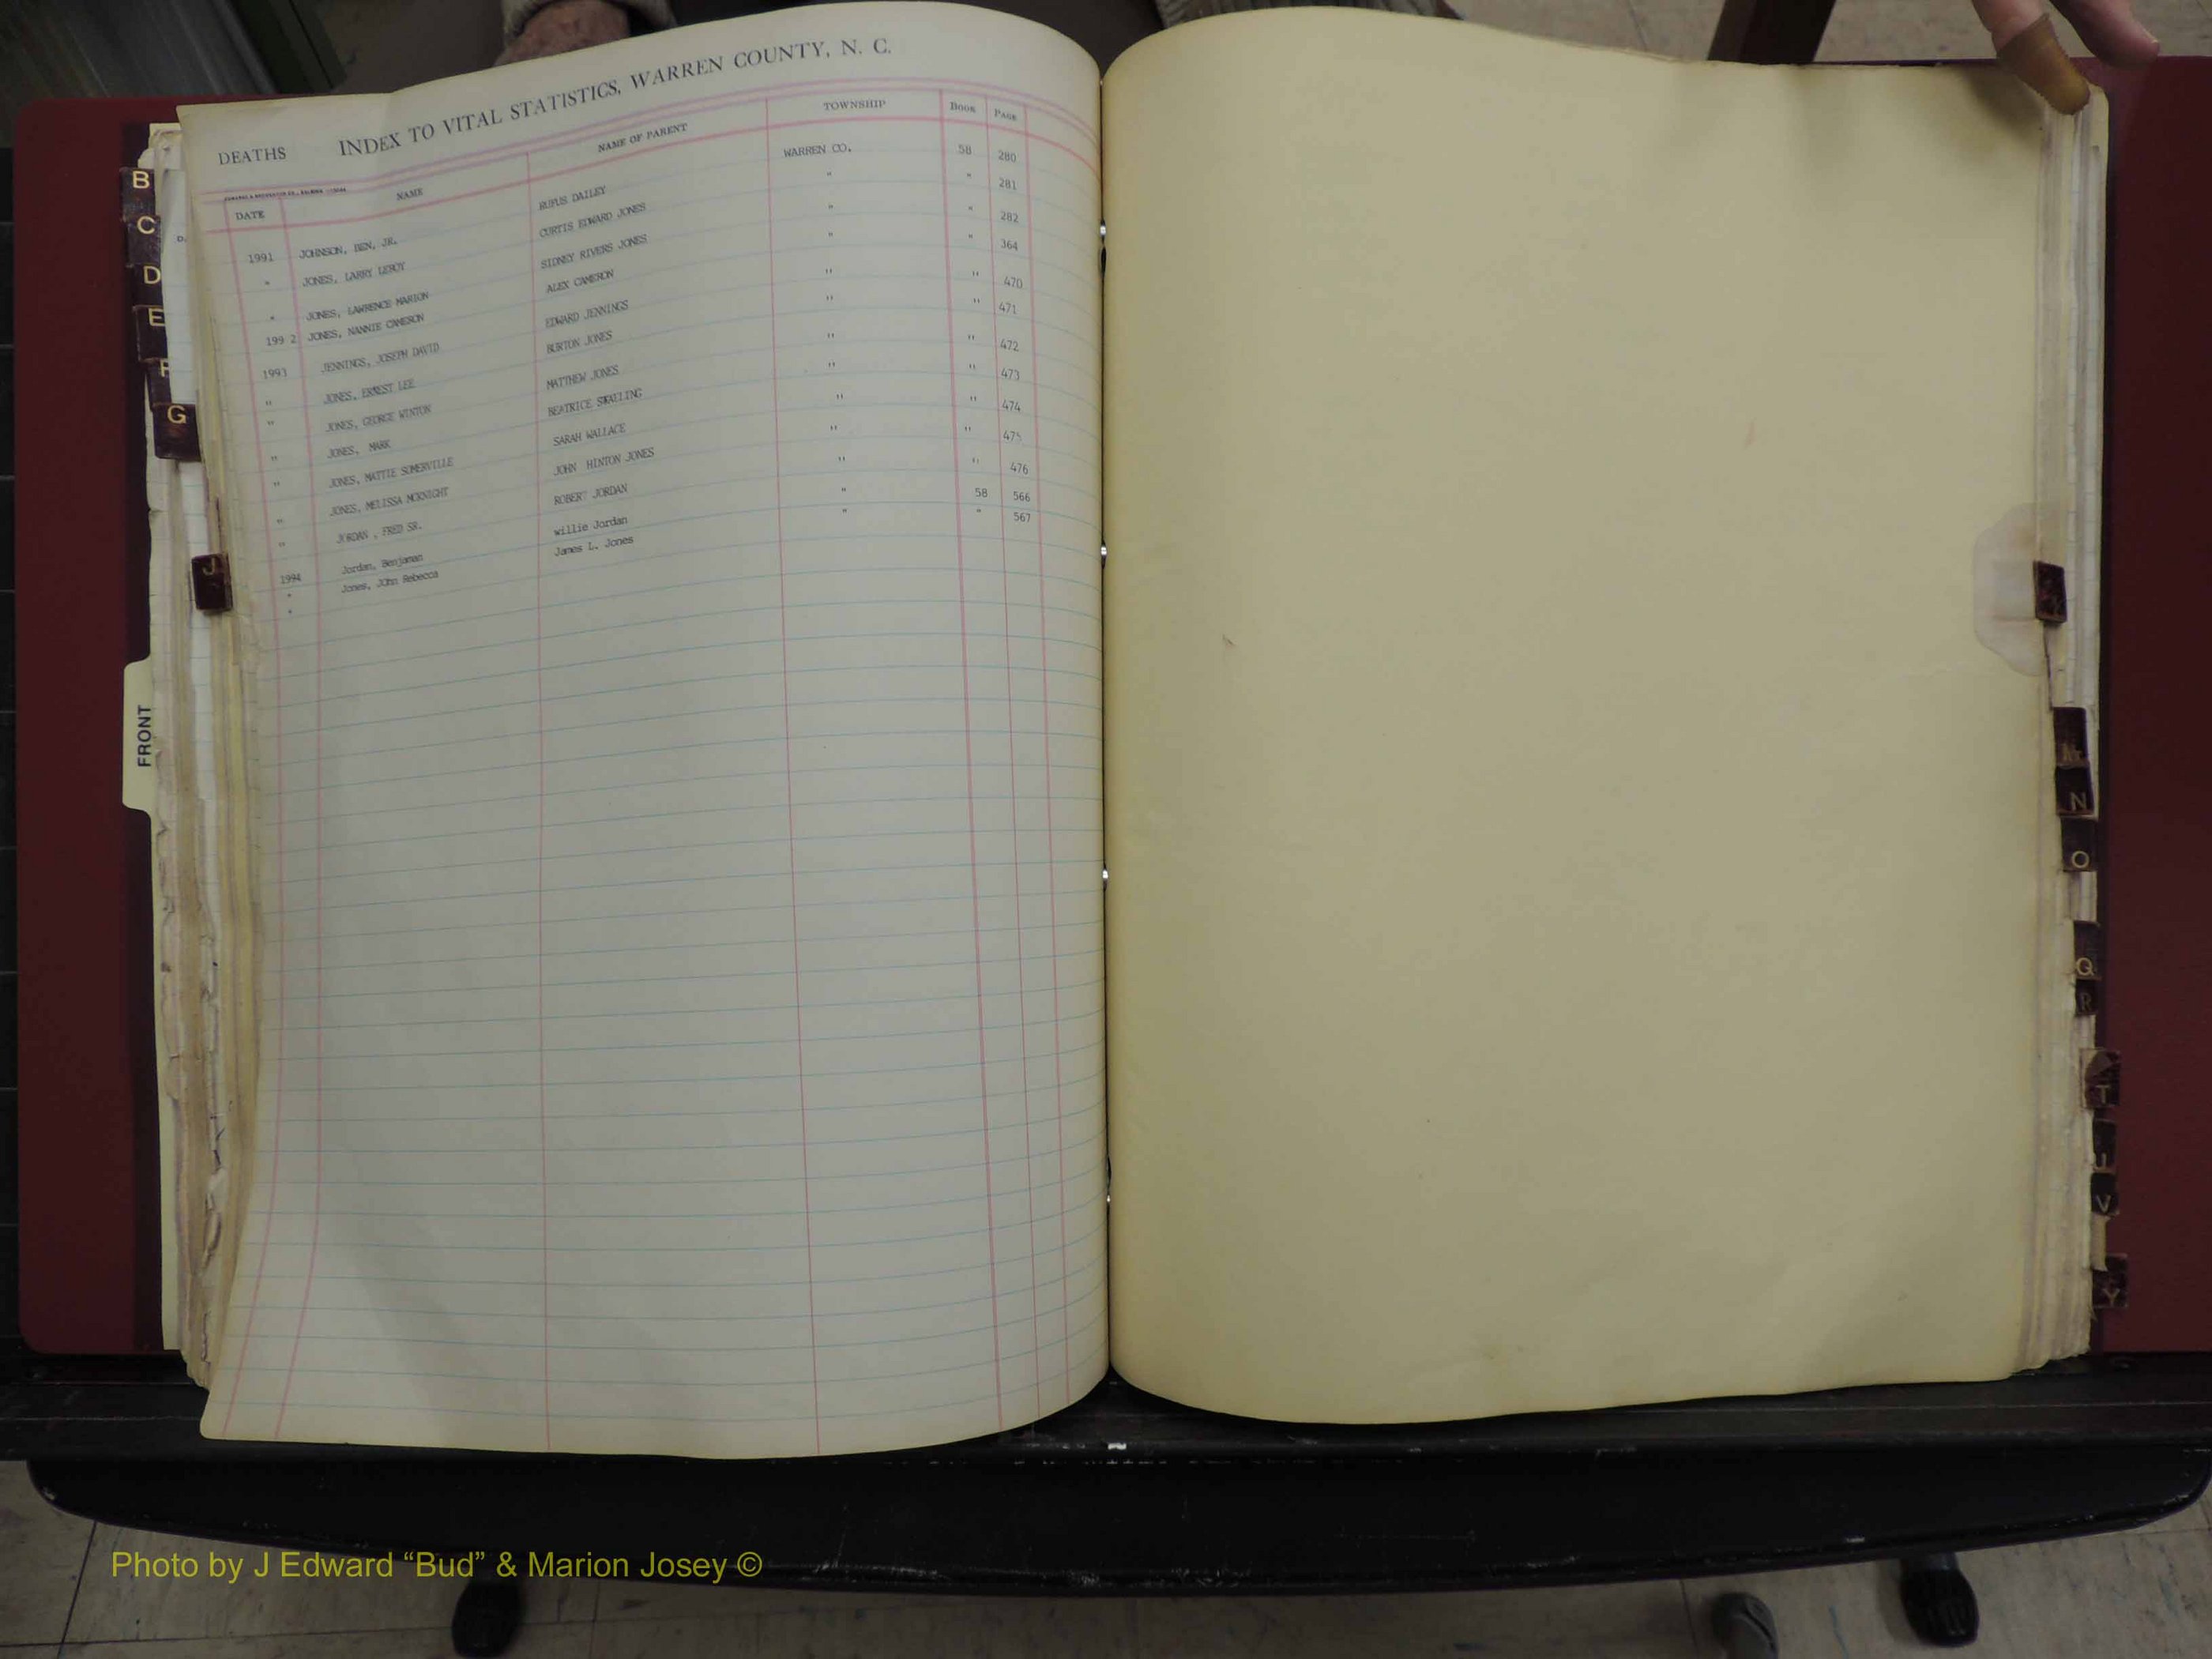 INDEX TO VITAL STATISTICS, WARREN COUNTY, N. C.
DEATHS
DATE NAME NAME OF PARENT TOWNSHIP BOOK PAGE
1991 JOHNSON, BEN, JR. RUFUS DAILEY WARREN CO. 58 280
" JONES, LARRY LEROY CURTIS EDWARD JONES " " 281
" JONES, LAWRENCE MARION SIDNEY RIVERS JONES " " 282
199 2 JONES, NANNIE CAMERON ALEX CAMERON " " 364
1993 JENNINGS, JOSEPH DAVID EDWARD JENNINGS " " 470
" JONES, ERNEST LEE BURTON JONES " " 471
" JONES, GEORGE WINTON MATTHEW JONES " " 472
" JONES, MARK BEATRICE " " 473
" JONES, MATTIE SOMERVILLE SARAH WALLACE " " 474
" JONES, MELISSA MCKNIGHT JOHN HINTON JONES " " 475
" JORDAN , FRED SR. ROBERT JORDAN " " 476
1994 Jordan, Benjaman willie Jordan " 58 566
" Jones, JOhn Rebecca James L. Jones " " 567
"
B
C
D
E
F
G
J
FRONT
N
O
Q
R
T
U
V
Y
Photo by J Edward “Bud” & Marion Josey ©